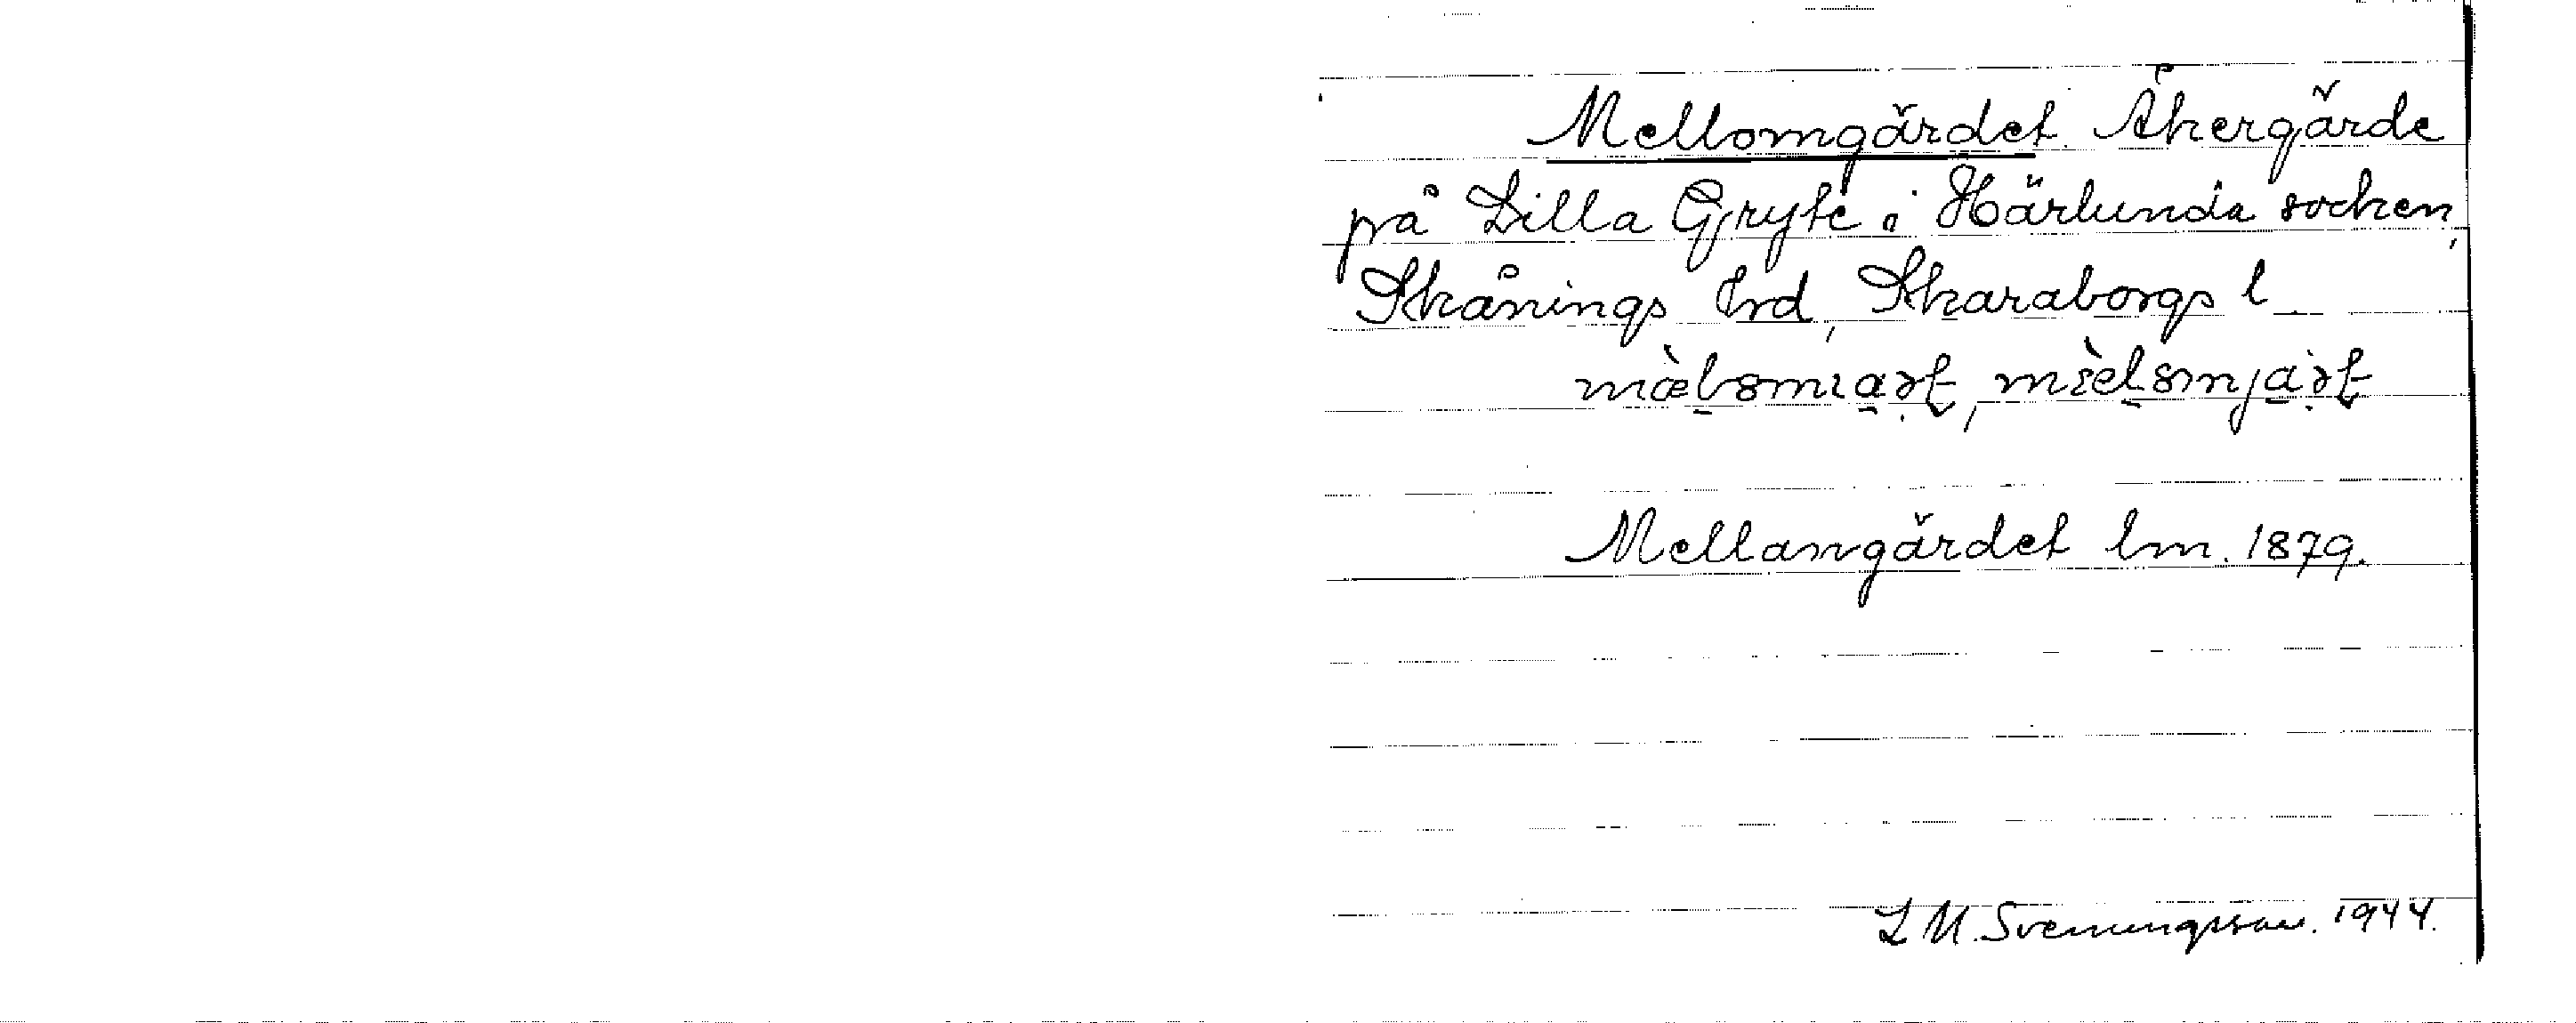 Mellomgärdet. Åkergärde
på Lilla Gryte i Härlunda socken,
Skånings hrd, Skaraborgs l
Mellangärdet lm. 1879.
L M. Svenungsson. 1944.